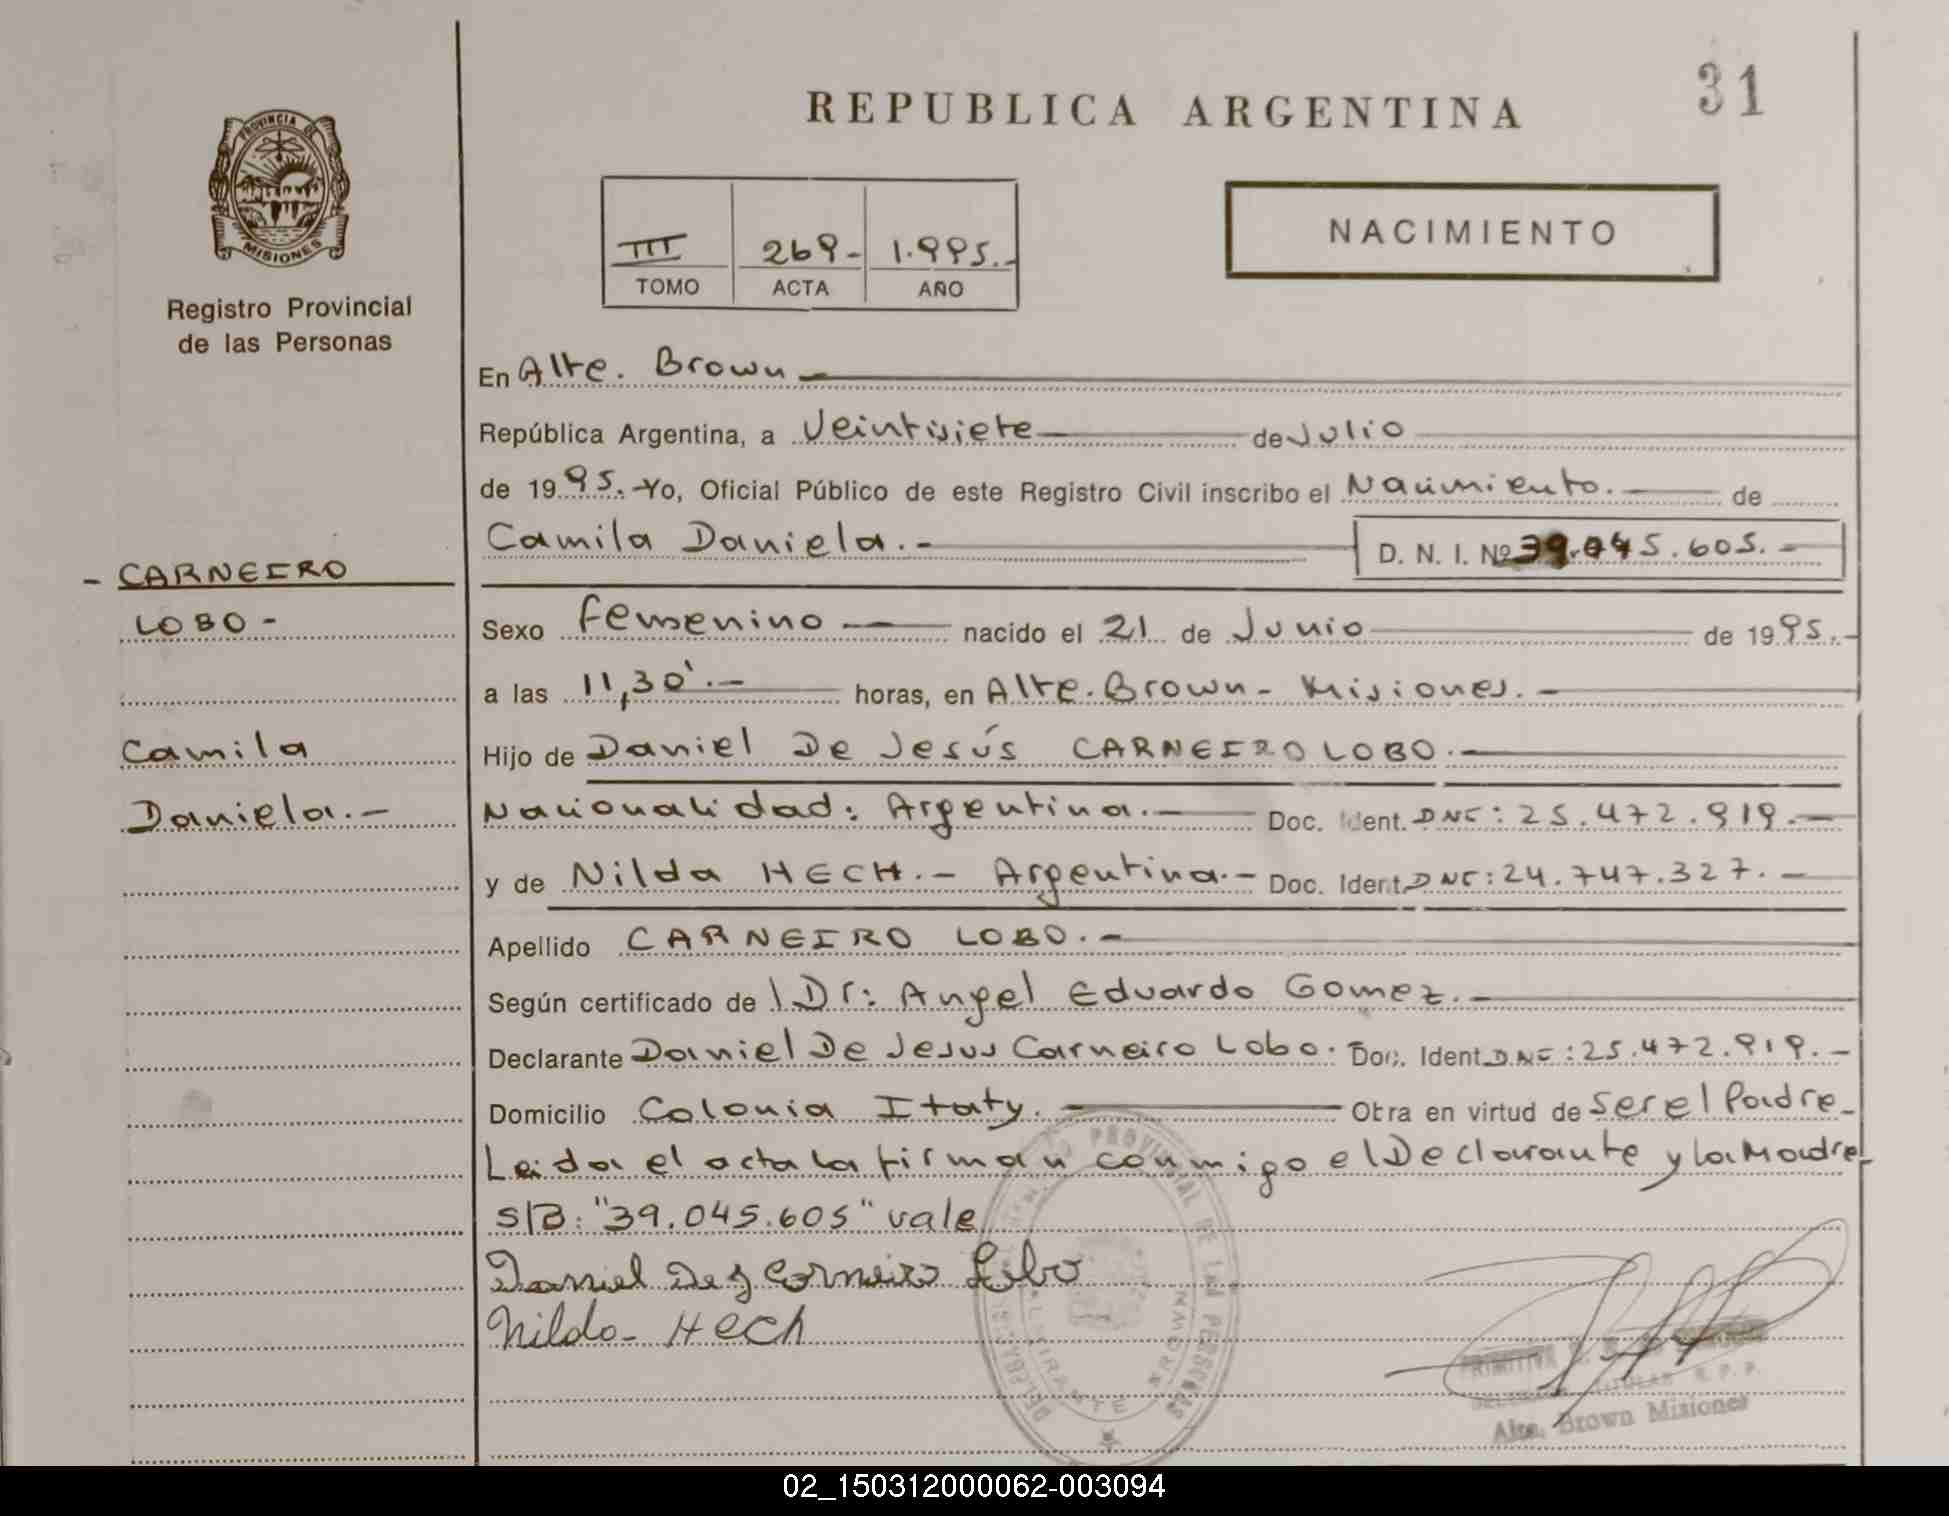 REPUBLICA ARGENTINA
31
PROVINCIA DE
MISIONES
Registro Provincial
de las Personas
III 269- 1.995.-
TOMO ACTA AÑO
NACIMIENTO
En Alte. Brown
República Argentina, a Veintisiete de Julio
de 1995.-Yo, Oficial Público de este Registro Civil inscribo el Nacimiento. de
Camila Daniela.- D. N. I. Nº 39.045.605.-
- CARNEIRO
LOBO-
Camila
Daniela.-
Sexo femenino nacido el 21 de Junio de 1995.-
a las 11,30'.- horas, en Alte. Brown- Misiones.-
Hijo de Daniel De Jesús CARNEIRO LOBO.-
Nacionalidad: Argentina.- Doc. Ident. DNI: 25.472.919.-
y de Nilda HECH.- Argentina.- Doc. Ident. DNI: 24.747.327.-
Apellido CARNEIRO LOBO.-
Según certificado de l Dr: Angel Eduardo Gomez.-
Declarante Daniel De Jesus Carneiro Lobo. Doc. Ident. DNI: 25.472.919.-
Domicilio Colonia Itaty. Obra en virtud de ser el Padre-
Leida el acta la firman conmigo el Declarante y la Madre-
S/B: "39.045.605" vale
Daniel De J Carneiro Lobo
Nilda- Hech
PROVINCIAL DE LAS PERSONAS
ALMIRANTE BROWN
PRIMITIVA
TITULAR R. P. P.
Alte. Brown Misiones
02_150312000062-003094